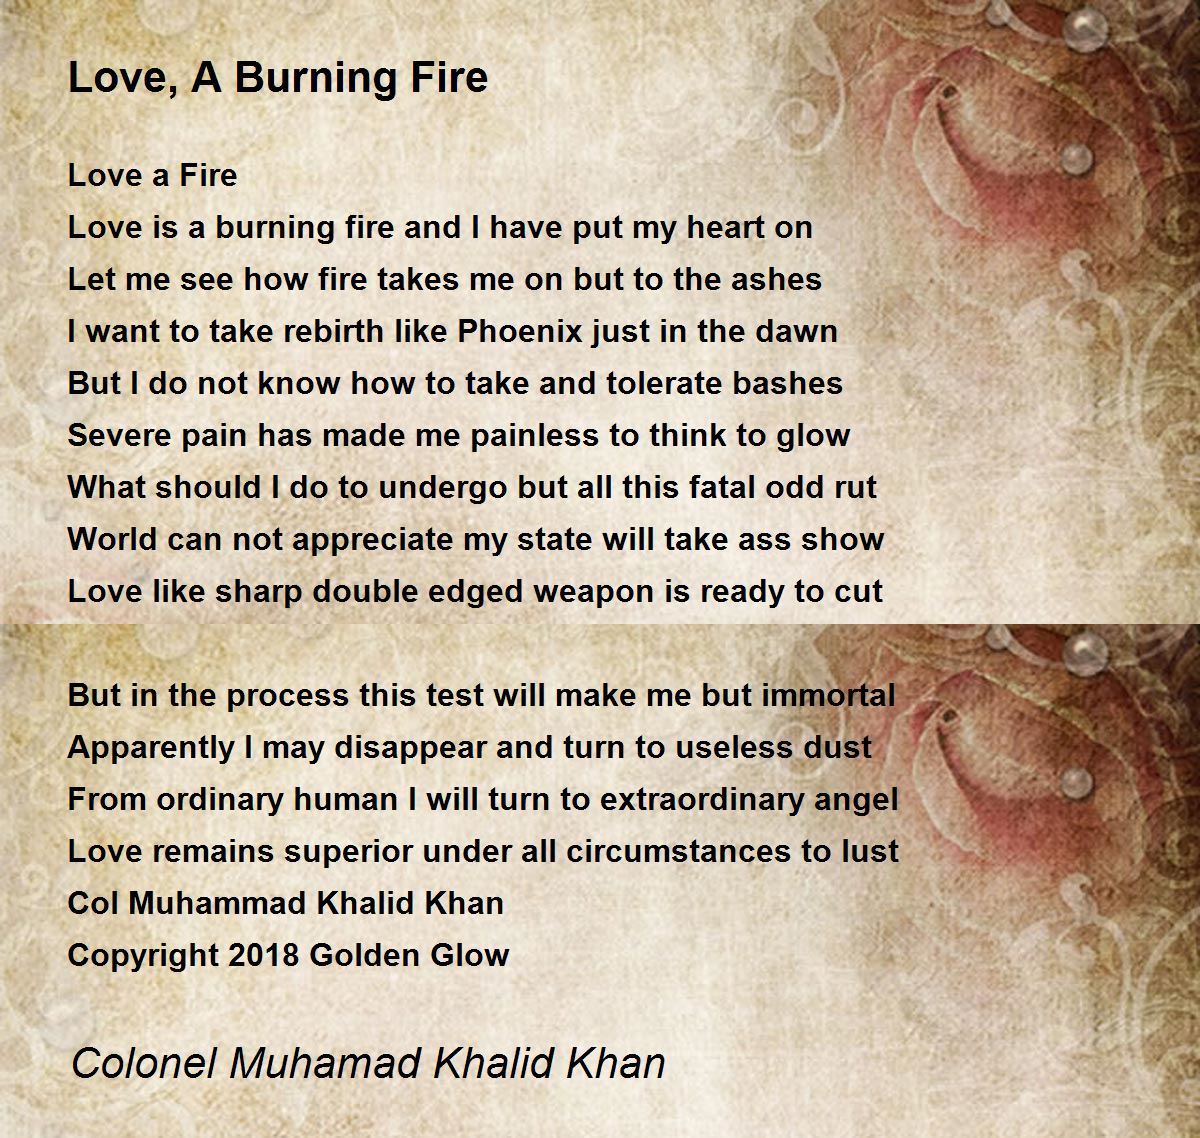 Love, A Burning Fire
Love a Fire
Love is a burning fire and I have put my heart on
Let me see how fire takes me on but to the ashes
I want to take rebirth like Phoenix just in the dawn
But I do not know how to take and tolerate bashes
Severe pain has made me painless to think to glow
What should I do to undergo but all this fatal odd rut
World can not appreciate my state will take ass show
Love like sharp double edged weapon is ready to cut
But in the process this test will make me but immortal
Apparently I may disappear and turn to useless dust
From ordinary human I will turn to extraordinary angel
Love remains superior under all circumstances to lust
Col Muhammad Khalid Khan
Copyright 2018 Golden Glow
Colonel Muhamad Khalid Khan